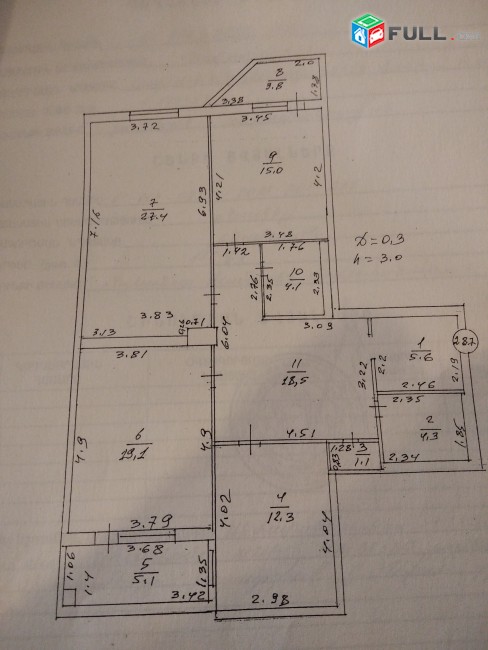 FULL.am
2.0
8
3.8
1.38
3.38
3.45
3.72
9
15.0
7
27.4
6.93
4.21
4.2
7.16
3.48
D=0.3
h=3.0
1.42
1.76
10
4.1
2.76
2.35
2.33
3.83
0.71
3.13
6.04
3.09
287
1
5.6
2.2
2.19
3.81
3.22
11
18,5
2.46
2.35
2
4.3
1.85
6
19,1
4.9
4.9
4.51
1.28
3
1.1
0.83
2.34
4
12.3
4.02
4.04
3.79
3.68
5
5.1
1.06
1.4
1.35
3.42
2.98